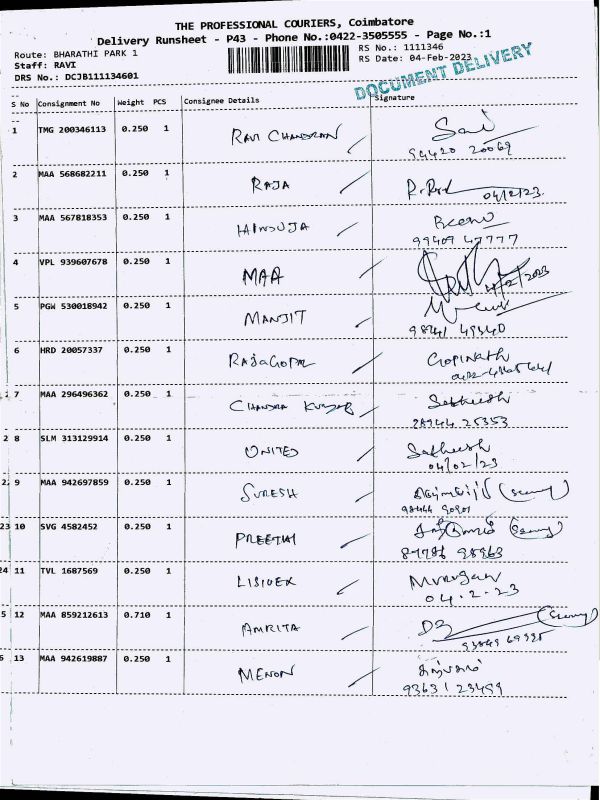 THE PROFESSIONAL COURIERS, Coimbatore
Delivery Runsheet - P43 - Phone No.:0422-3505555 - Page No.:1
Route: BHARATHI PARK 1 RS No.: 1111346
Staff: RAVI RS Date: 04-Feb-2023
DRS No.: DCJB111134601
DOCUMENT DELIVERY
S No Consignment No Weight PCS Consignee Details Signature
1 TMG 200346113 0.250 1 RAVI CHANDRAN Sai
99420 20069
2 MAA 568682211 0.250 1 RAJA 04/2/23.
3 MAA 567818353 0.250 1 HINDUJA
99409 47777
4 VPL 939607678 0.250 1 MAA 04/02/2023
5 PGW 530018942 0.250 1 MANJIT
9841 49340
6 HRD 20057337 0.250 1 RAJAGOPAL Gopinath
7 MAA 296496362 0.250 1 CHANDRA KUMAR Satheesh
25353
2 8 SLM 313129914 0.250 1 UNITED Satheesh
04/02/23
9 MAA 942697859 0.250 1 SURESH
23 10 SVG 4582452 0.250 1 PREETHI
98963
24 11 TVL 1687569 0.250 1 Murugan
04.2.23
5 12 MAA 859212613 0.710 1 AMRITA
6 13 MAA 942619887 0.250 1 MENON